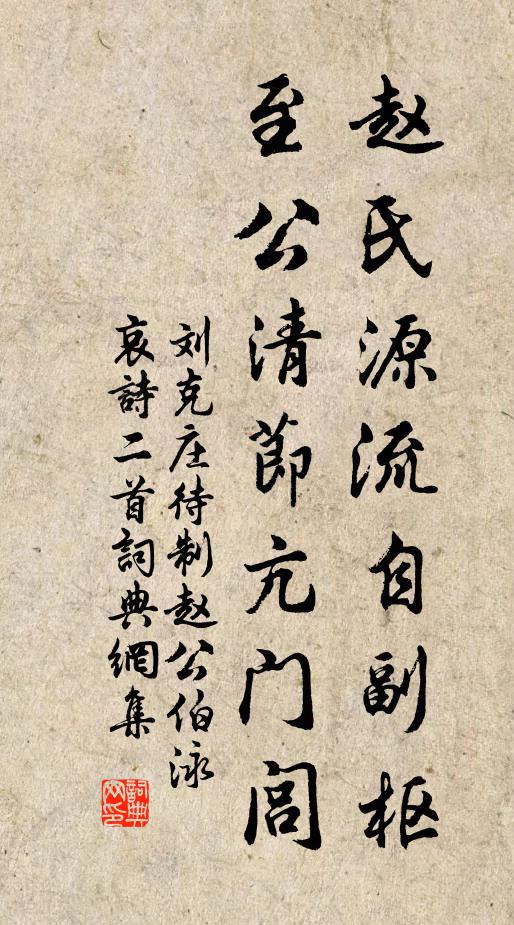 赵氏源流自副枢
至公清节亢门闾
刘克庄待制赵公伯泳
哀詩二首詞典網集
詞典网印